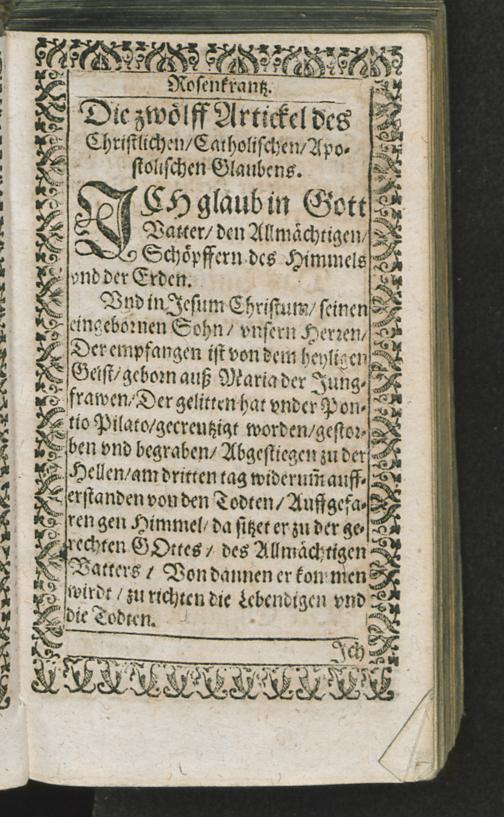 Rosenkrantz.
Die zwölff Artickel des
Christlichen/Catholischen/Apo-
stolischen Glaubens.
ICH glaub in Gott
Vatter/ den Allmächtigen/
Schöpffern des Himmels
vnd der Erden.
Vnd in Jesum Christum/ seinen
eingebornen Sohn/ vnsern Herren/
Der empfangen ist von dem heyligen
Geist/ geborn auß Maria der Jung-
frawen/ Der gelitten hat vnder Pon-
tio Pilato/ gecreutzigt worden/ gestor-
ben vnd begraben/ Abgestiegen zu der
Hellen/ am dritten tag widerum̃ auff-
erstanden von den Todten/ Auffgefa-
ren gen Himmel/ da sitzet er zu der ge-
rechten GOttes/ des Allmächtigen
Vatters/ Von dannen er kommen
wirdt/ zu richten die Lebendigen vnd
die Todten.
Jch